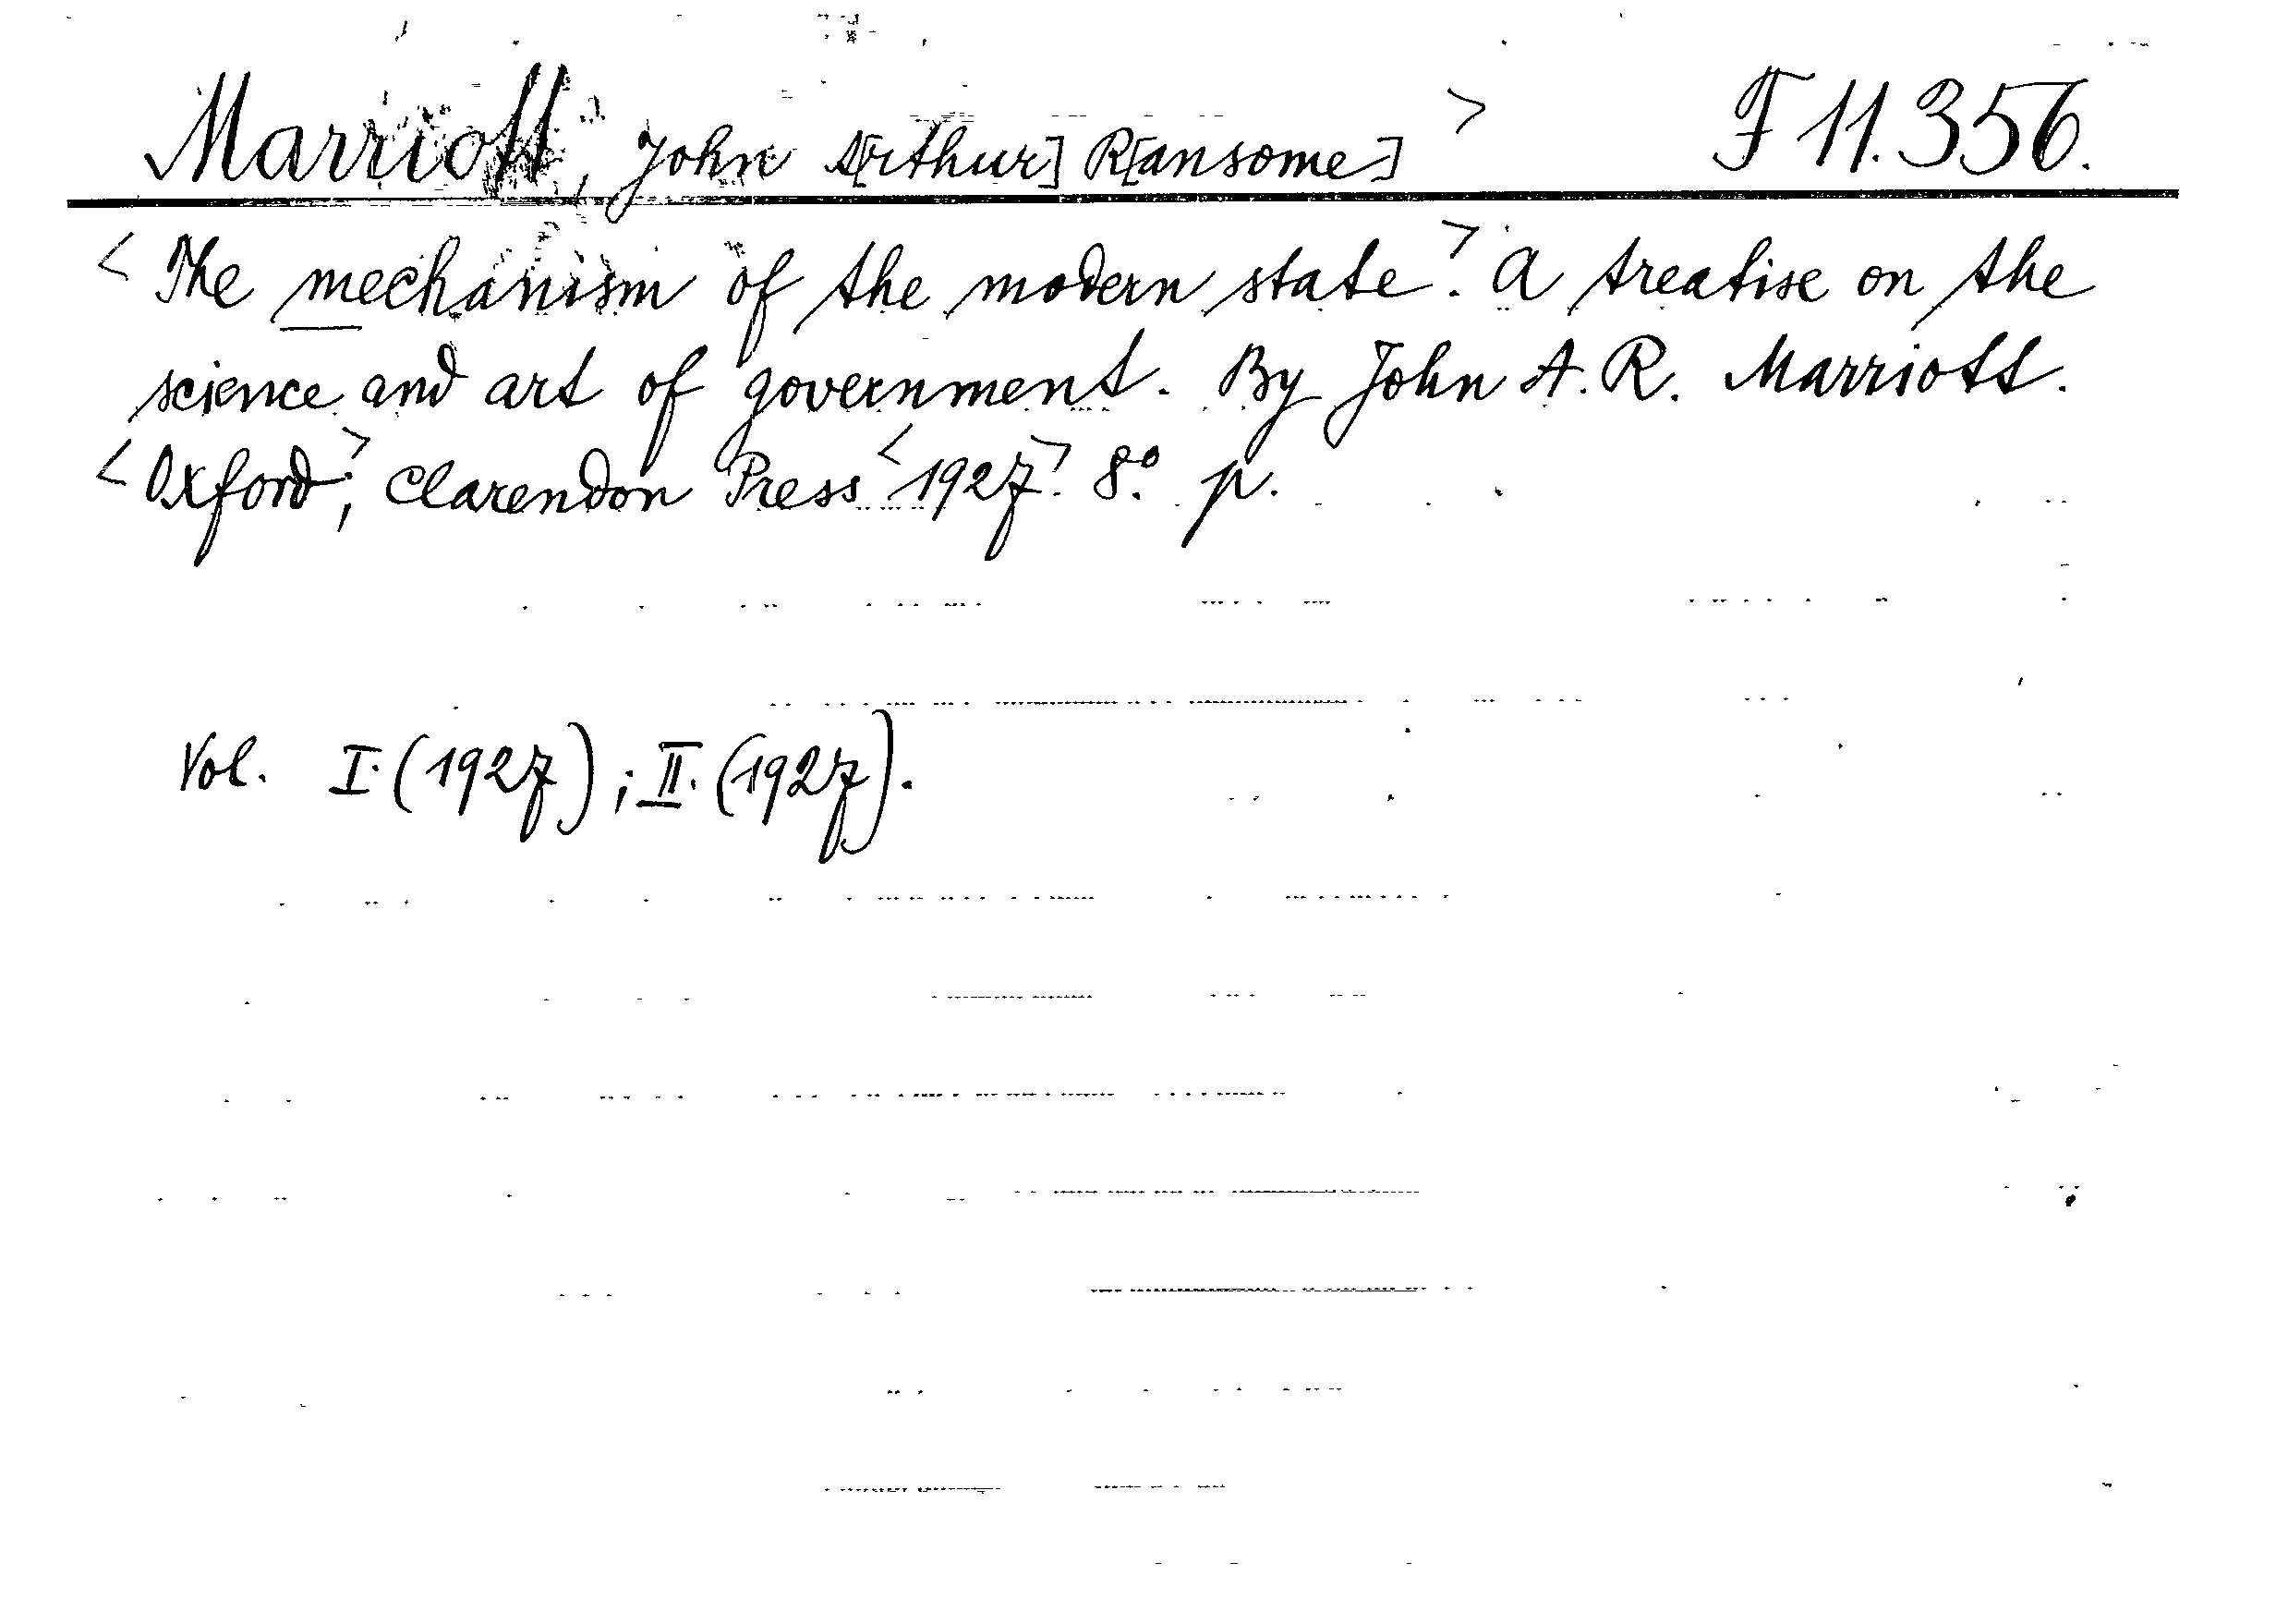 Marriott, John A[rthur] R[ansome]> F 11.356.
<The mechanism of the modern state>. A treatise on the
science and art of government. By John A. R. Marriott.
<Oxford>, Clarendon Press <1927>. 8.° p.
Vol. I. (1927); II. (1927).